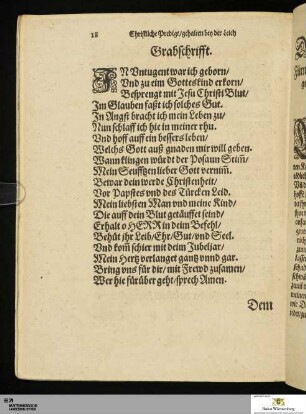 18 Christliche Predigt/gehalten bey der Leich
Grabschrifft.
IN Vntugent war ich geborn/
Vnd zu eim Gotteskind erkorn/
Besprengt mit Jesu Christi Blut/
Im Glauben faßt ich solches Gut.
In Angst bracht ich mein Leben zu/
Nun schlaff ich hie in meiner rhu.
Vnd hoff auff ein bessers leben/
Welchs Gott auß gnaden mir will geben.
Wann klingen würt der Posaun Stim̃/
Mein Seufftzen lieber Gott vernim̃.
Bewar dein werde Christenheit/
Vor Papstes vnd des Türcken Leid.
Mein liebsten Man vnd meine Kind/
Die auff dein Blut getäuffet seind/
Erhalt o HERR in deim Befehl/
Behüt jhr Leib/Ehr/Gut/vnd Seel.
Vnd kom̃ schier mit deim Jubeljar/
Mein Hertz verlanget gantz vnnd gar.
Bring vns für dir/mit Frewd zusamen/
Wer hie fürüber geht/sprech Amen.
Dem